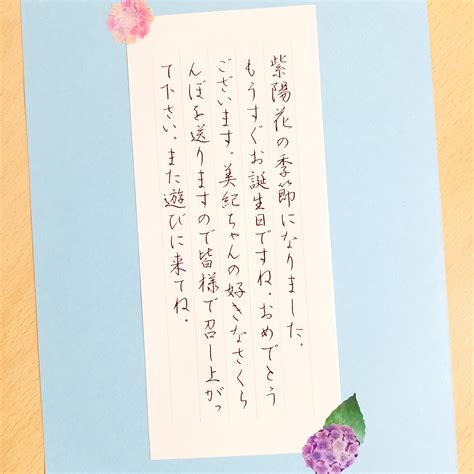 紫陽花の季節になりました。
もうすぐお誕生日ですね。おめでとう
ございます。美紀ちゃんの好きなさくら
んぼを送りますので皆様で召し上がっ
て下さい。また遊びに来てね。